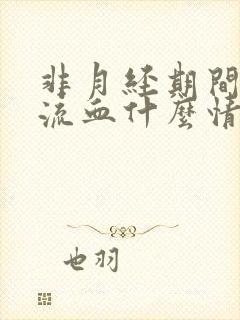 非月经期間
流血什麼情
也羽